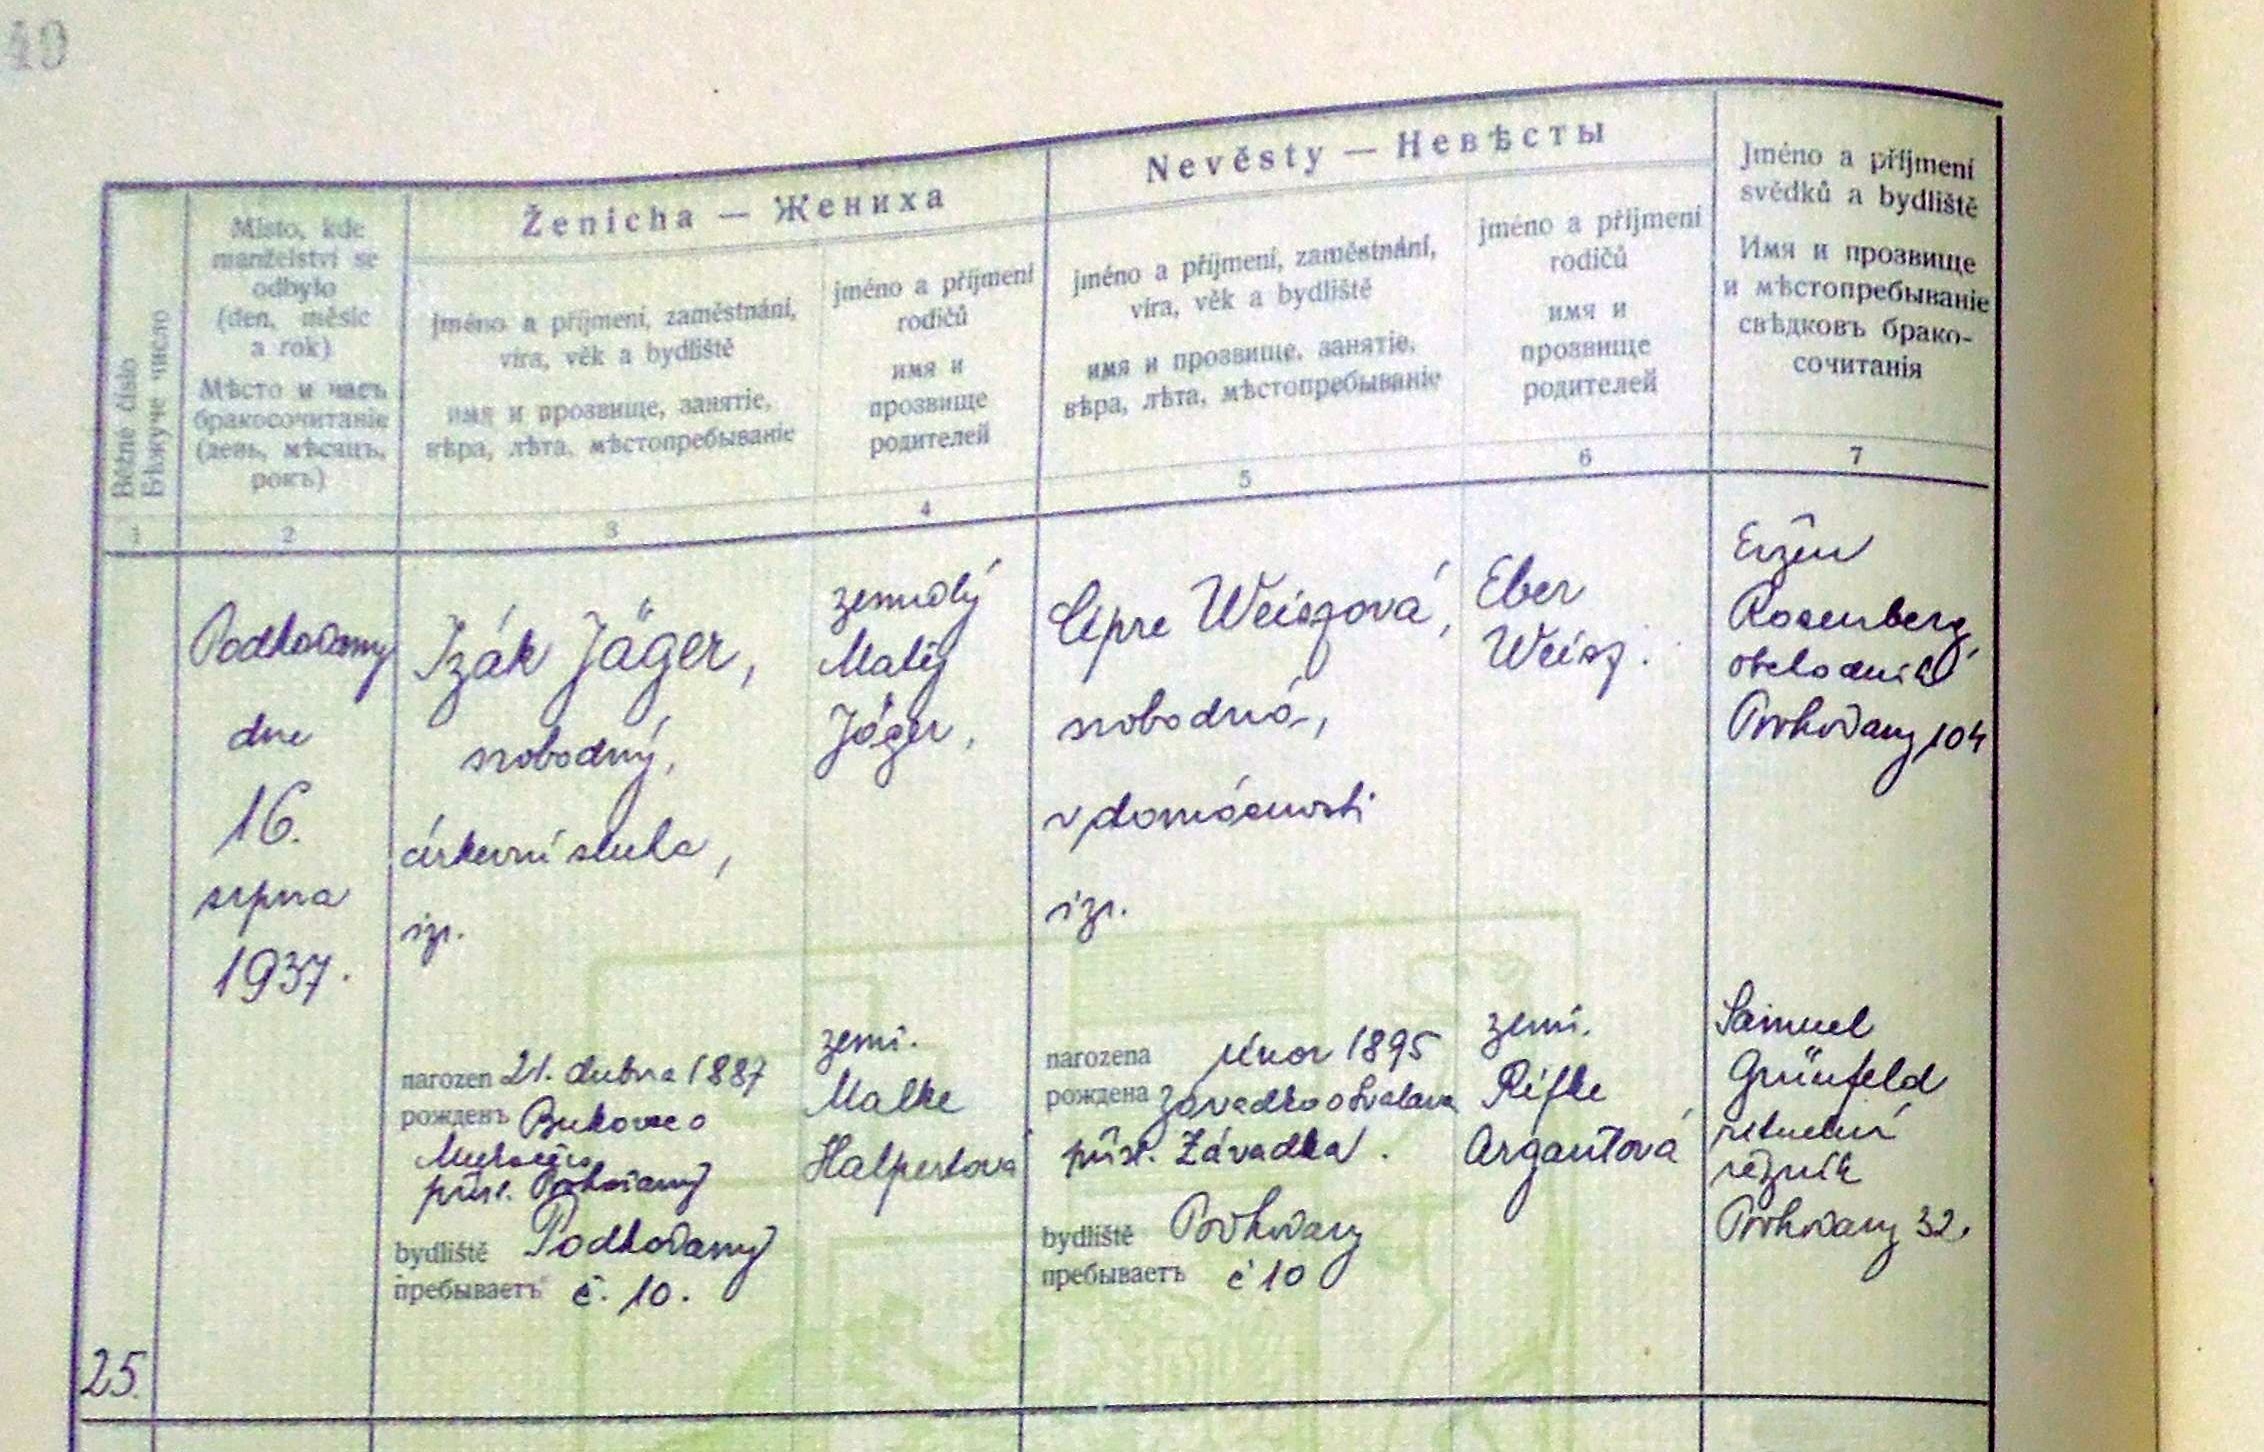 49
Ženicha — Жениха
Nevěsty — Невѣсты
Běžné číslo
Бѣжуче число
Místo, kde
manželství se
odbylo
(den, měsíc
a rok)
Мѣсто и часъ
бракосочитаніе
(день, мѣсяцъ,
рокъ)
jméno a příjmení, zaměstnání,
víra, věk a bydliště
имя и прозвище, занятіе,
вѣра, лѣта, мѣстопребываніе
jméno a příjmení
rodičů
имя и
прозвище
родителей
jméno a příjmení, zaměstnání,
víra, věk a bydliště
имя и прозвище, занятіе,
вѣра, лѣта, мѣстопребываніе
jméno a příjmení
rodičů
имя и
прозвище
родителей
Jméno a příjmení
svědků a bydliště
Имя и прозвище
и мѣстопребываніе
свѣдковъ брако-
сочитанія
1 2 3 4 5 6 7
25.
Podhořany
dne
16.
srpna
1937.
Izák Jäger,
svobodný,
církevní sluha,
izr.
narozen 21. dubna 1887
рожденъ Bukovec o
Mukačevo
přísl. Podhořany
bydliště Podhořany
пребываетъ č. 10.
zemřelý
Jäger,
zemř.
Malke
Halpertová
Cipre Weiszová,
svobodná,
v domácnosti
izr.
narozena únor 1895
рождена Závadka o Svalava
přísl. Závadka.
bydliště Podhořany
пребываетъ č 10
Eber
Weisz.
zemř.
Rifke
Argantová
Evžen
Rosenberg,
obchodník
Podhořany 104
Samuel
Grünfeld
rituelní
řezník
Podhořany 32.